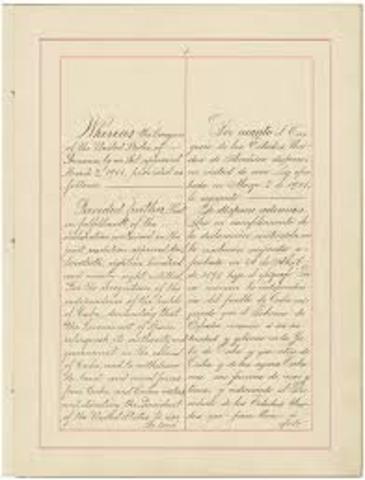 Whereas the Congress
of the United States of
America, by an Act approved
March 2, 1901, provided as
follows:
Provided further, That
in fulfillment of the
declaration contained in the
joint resolution approved April
twentieth, eighteen hundred
and ninety-eight, entitled
For the recognition of the
independence of the people
of Cuba, demanding that
the Government of Spain
relinquish its authority and
government in the island
of Cuba, and to withdraw
its land and naval forces
from Cuba and Cuban waters
and directing the President
of the United States to use
the land
Por cuanto el Con-
greso de los Estados Uni-
dos de América dispuso,
en virtud de una Ley apro-
bada en Marzo 2 de 1901,
lo siguiente:
Se dispone además,
Que en cumplimiento de
la declaración contenida en
la resolución conjunta a-
probada en de Abril
de 1898 bajo el
la independen-
cia del pueblo de Cuba exi-
giendo que el Gobierno de
España renuncie á su au-
toridad y gobierno en la Is-
la de Cuba y que retire de
Cuba y de las aguas Cuba-
nas sus fuerzas de mar y
tierra y ordenando al Pre-
sidente de los Estados Uni-
dos que para llevar á